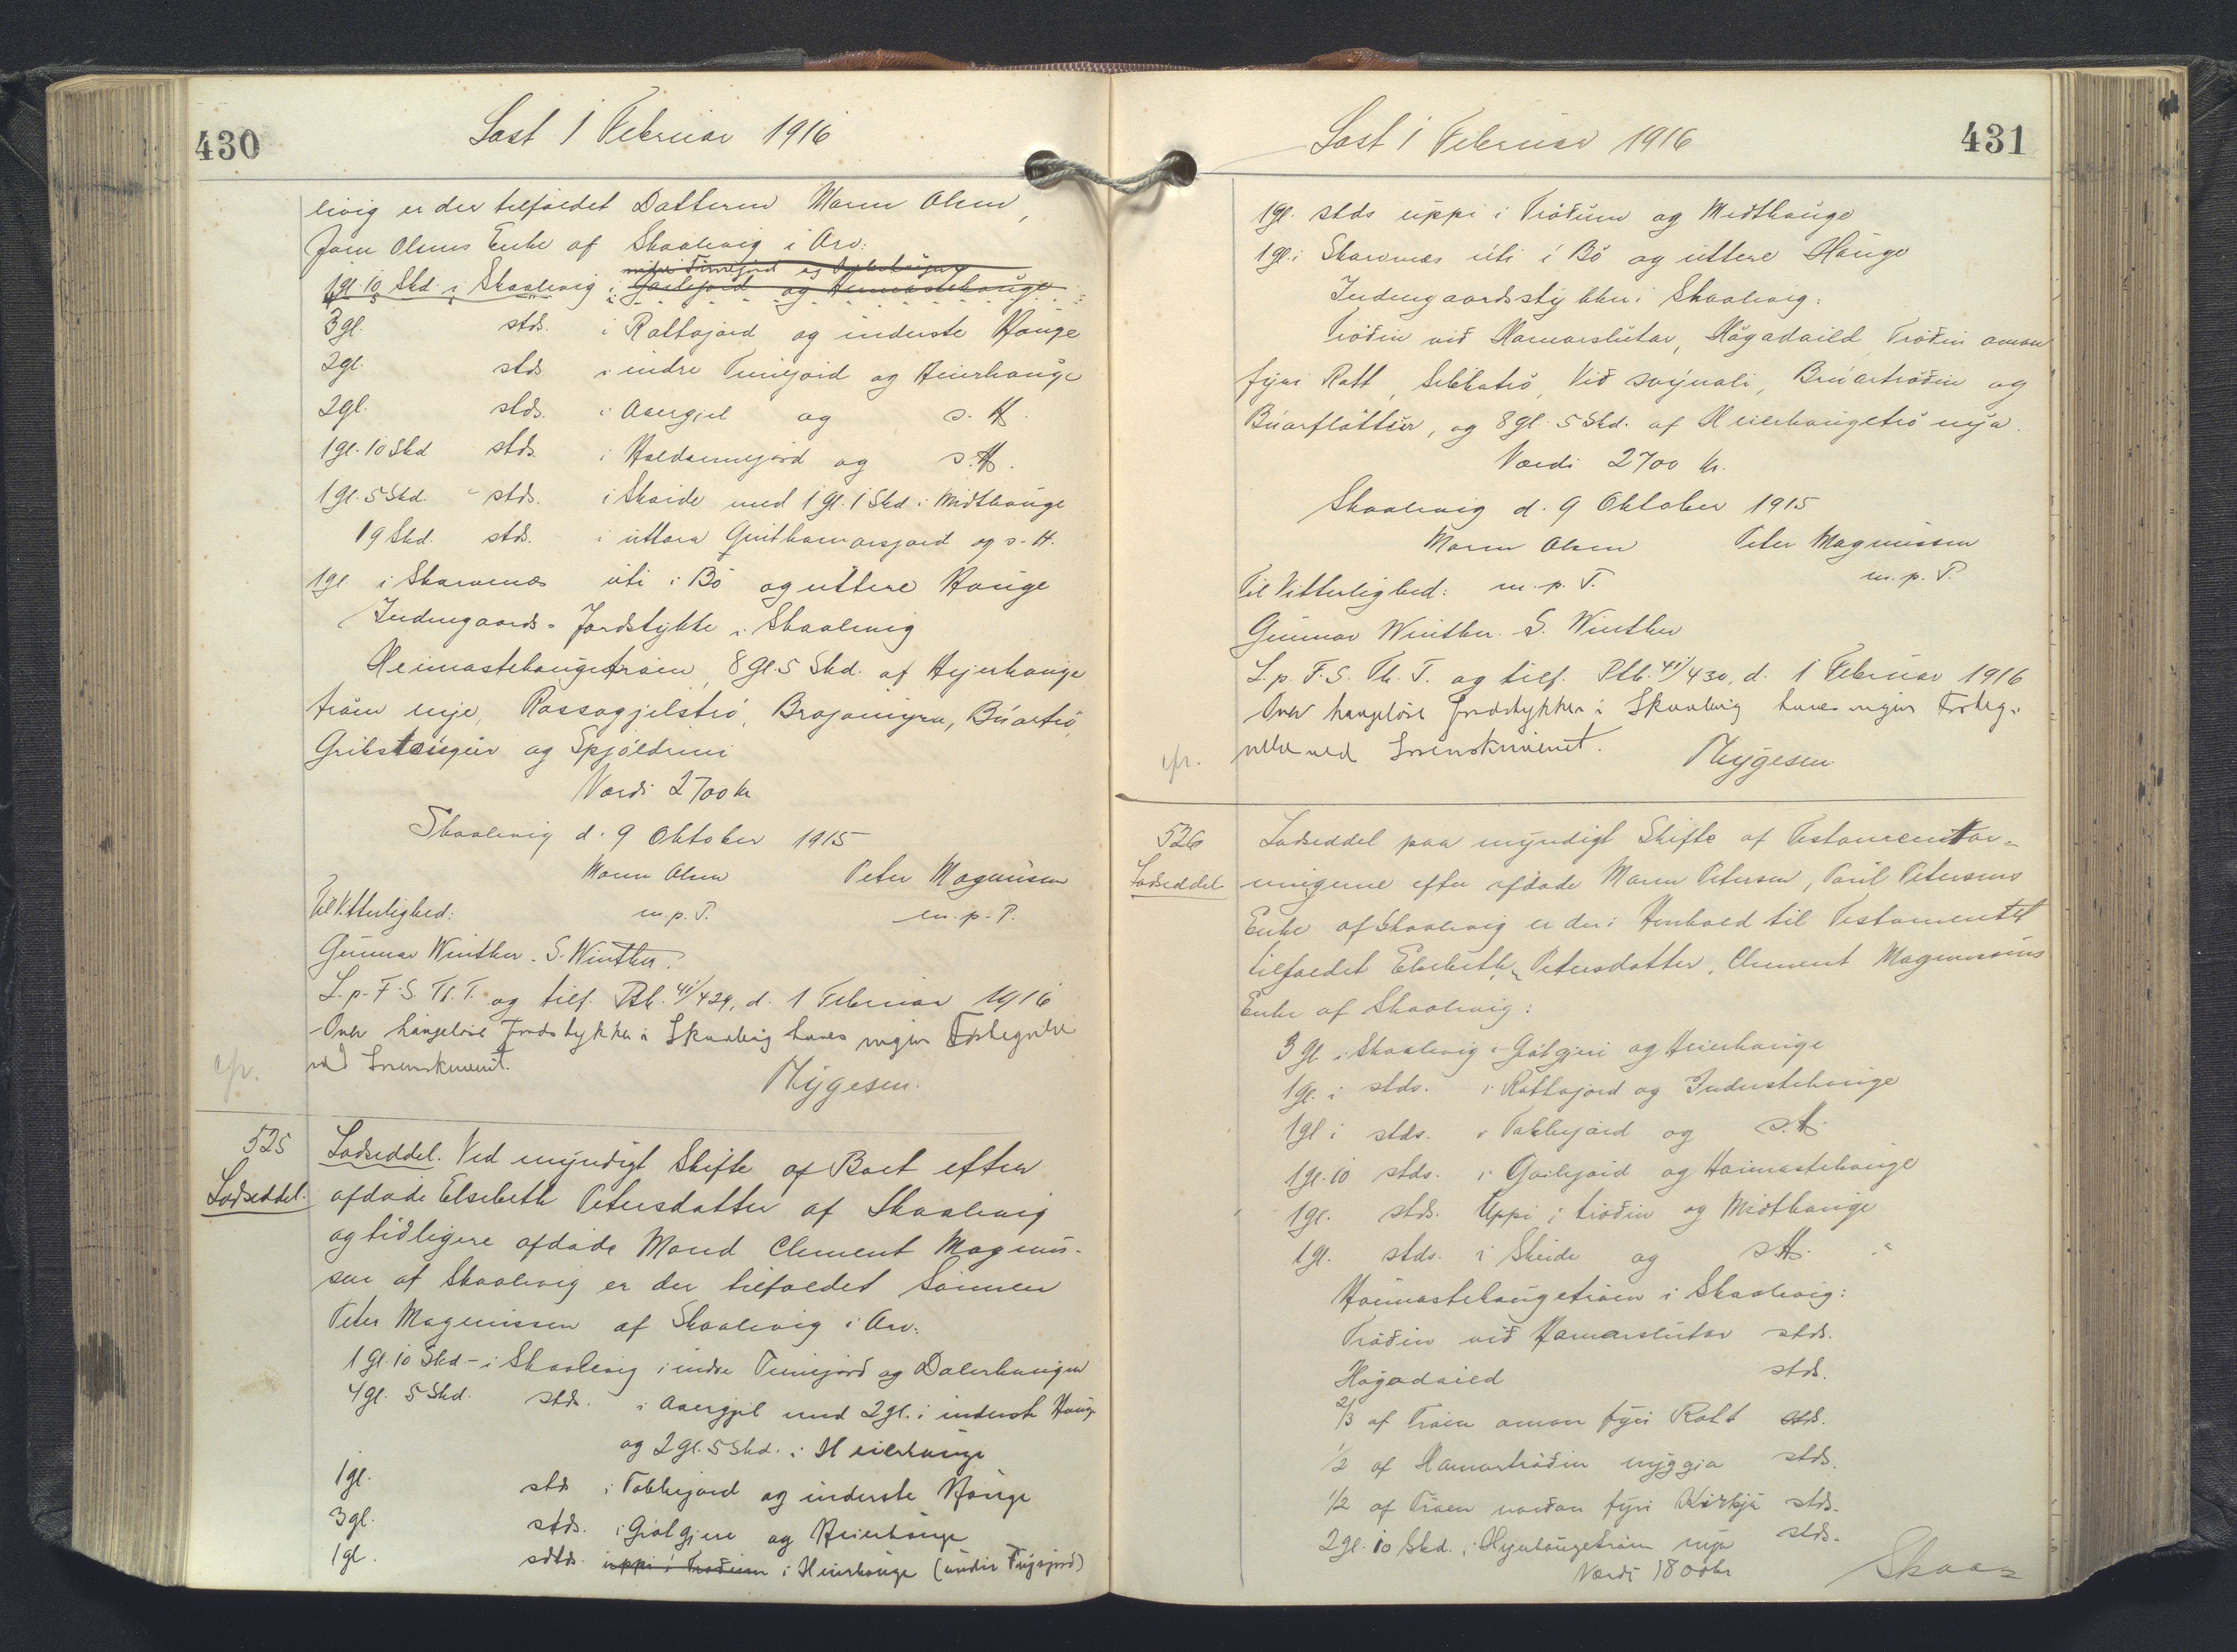 430
Læst 1 Februar 1916
livig er der tilfaldet Datteren Maren Olsen,
Joen Olsens Enke af Skaalevig i Arv:
1 gl. 10 Skd. i Skaalevig i Gailejord og Heimastehauge
3 gl. stds. i Rattajord og inderste Hauge
2 gl. stds i indre Tunejord og Heierhauge
2 gl. stds. i Aaergjel og s. H.
1 gl. 10 Skd stds. i Haldarmejord og s. H.
1 gl. 5 Skd. stds. i Skeide med 1 gl. 1 Skd. i Midthauge
19 Skd. stds. i uttara Gruthamarsjord og s. H.
1 gl i Skarvenæs úti i Bö og uttere Hauge
Indengaards-Jordstykke i Skaalevig
Heimastehaugetråen, 8 gl. 5 Skd. af Hejerhauge
tråen nye, Rossagjelstrø, Brajamyra, Búartrø,
og Spjóldrini
Værdi 2700 kr
Skaalevig d. 9 Oktober 1915
Maren Olsen Peter Magnussen
Til Vitterlighed: m. p. P. m. p. P.
Gunnar Winther. S. Winther.
L. p. F. S. Th. T. og tilf. Ptb. 41/429, d. 1 Februar 1916
Over haugeløse Jordstykker i Skaalevig haves ingen Fortegnelse
ved Sorenskriveriet.
cfr.
Mygesen.
525
Lodseddel.
Lodseddel. Ved myndigt Skifte af Boet efter
afdøde Elsebeth Petersdatter af Skaalevig
og tidligere afdøde Mand Clement Magnus-
sen af Skaalevig er der tilfaldet Sønnen
Peter Magnussen af Skaalevig i Arv:
1 gl. 10 Skd - i Skaalevig i indre Tunejord og Dalerhaugen
4 gl. 5 Skd. stds. i Aaergjel med 2 gl. i inderste Hauge
og 2 gl. 5 Skd. i Heierhauge
1 gl. stds i Takkejord og inderste Hauge
3 gl. stds. i Grötgjeri og Heierhauge
1 gl. stds. uppi i Tröðum i Heierhauge (undir Trysjord)
431
Læst 1 Februar 1916
1 gl. stds uppi i Tröðum og Midthauge
1 gl. i Skarvnæs úti i Bö og uttere Hauge
Indengaardsstykker i Skaalevig:
Tröðin við Hamarslutar, Högadaild, Tröðin oman
fyri Ratt, Sekkatrö, Við svynali, Brúartröðin og
Búarflöttur, og 8 gl. 5 Skd. af Heierhaugetrö nya.
Værdi 2700 kr.
Skaalevig d. 9 Oktober 1915
Maren Olsen Peter Magnussen
Til Vitterlighed: m. p. P. m. p. P.
Gunnar Winther. S. Winther
L. p. F. S. Th. T. og tilf. Ptb. 41/430, d. 1 Februar 1916
Over haugeløse Jordstykker i Skaalevig haves ingen Forteg-
nelse ved Sorenskriveriet.
cfr.
Mygesen
526
Lodseddel
Lodseddel paa myndigt Skifte af Testamentar-
vingerne efter afdøde Maren Petersen, Poul Petersens
Enke af Skaalevig er der i Henhold til Testamentet
tilfaldet Elsebeth Petersdatter, Clement Magnussens
Enke af Skaalevig:
3 gl. i Skaalevig i Grötgjeri og Heierhauge
1 gl. i stds. i Rattajord og Inderstehauge
1 gl i stds. i Takkejord og s. H.
1 gl. 10 stds. i Gailejord og Haimastehauge
1 gl. stds. Uppi i tröðin og Midthauge
1 gl. stds. i Skeide og s. H.
Haimastehaugetråen i Skaalevig:
Tröðin við Hamarslutar stds.
Högadaild stds.
2/3 af Tråen oman fyri Ratt stds.
1/2 af Hamartröðin nyggja stds.
1/2 af Tråen norðan fyri Kirkju stds.
2 gl. 10 Skd. i Hejerhaugetråen nye stds.
Værdi 1800 kr
Skaa=